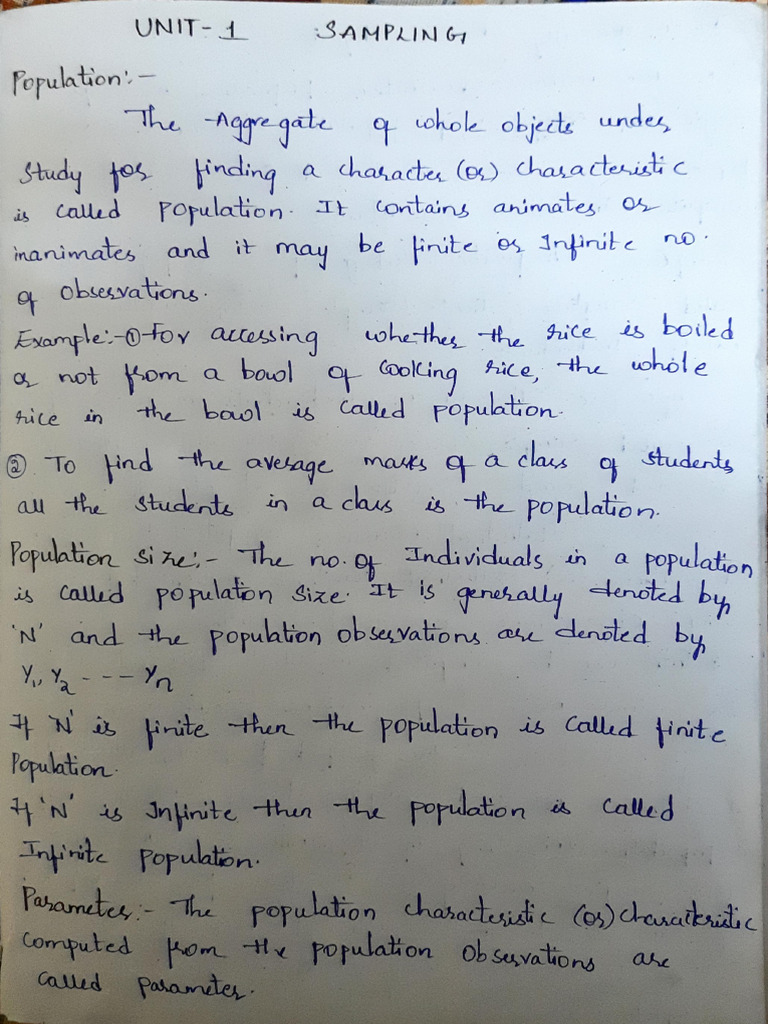 UNIT-1 SAMPLING
Population:-
The Aggregate of whole objects under
Study for finding a character (or) characteristic
is called population. It contains animates or
inanimates and it may be finite or Infinite no.
of observations.
Example:- ① For accessing whether the rice is boiled
or not from a bowl of cooking rice, the whole
rice in the bowl is called population.
② To find the average marks of a class of students
all the students in a class is the population.
Population size:- The no. of Individuals in a population
is called population size. It is generally denoted by
'N' and the population observations are denoted by
Y1, Y2 - - - Yn
If 'N' is finite then the population is called finite
Population.
If 'N' is Infinite then the population is called
Infinite population.
Parameter:- The population characteristic (or) characteristic
computed from the population observations are
called parameter.